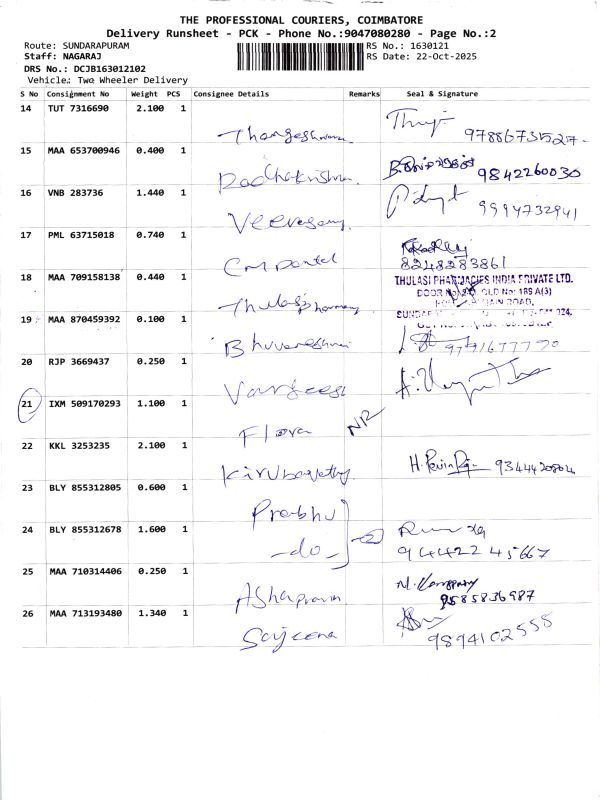 THE PROFESSIONAL COURIERS, COIMBATORE
Delivery Runsheet - PCK - Phone No.:9047080280 - Page No.:2
Route: SUNDARAPURAM
RS No.: 1630121
Staff: NAGARAJ
RS Date: 22-Oct-2025
DRS No.: DCJB163012102
Vehicle: Two Wheeler Delivery
S No Consignment No Weight PCS Consignee Details Remarks Seal & Signature
14 TUT 7316690 2.100 1
15 MAA 653700946 0.400 1
Radhakrishnan 9842260030
16 VNB 283736 1.440 1
Veerasamy 9994732941
17 PML 63715018 0.740 1
8248283861
18 MAA 709158138 0.440 1
THULASI PHARMACIES INDIA PRIVATE LTD.
Thulasi pharmacy
19 MAA 870459392 0.100 1
Bhuvaneshwari 9791677770
20 RJP 3669437 0.250 1
21 IXM 509170293 1.100 1
Flora
22 KKL 3253235 2.100 1
9344420804
23 BLY 855312805 0.600 1
Prabhu
24 BLY 855312678 1.600 1
-do-
94422 45667
25 MAA 710314406 0.250 1
9585836987
26 MAA 713193480 1.340 1
Sajeena 9894102558